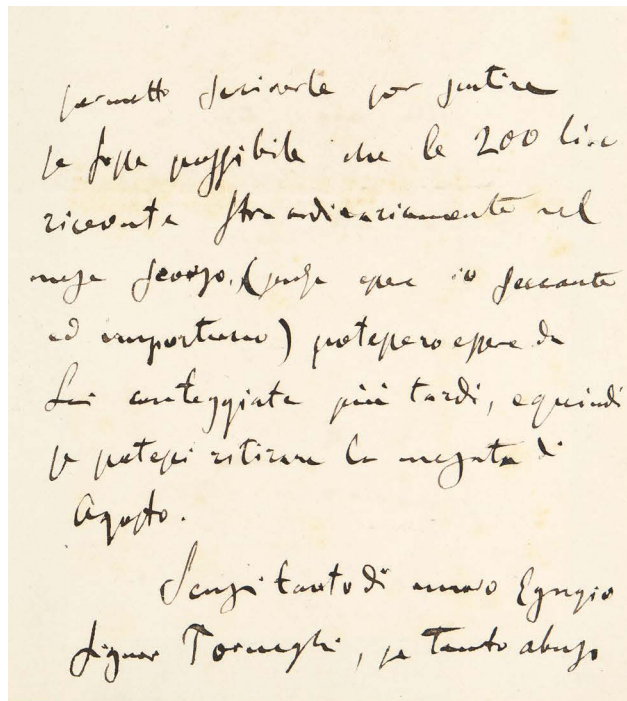 permetto scriverle per sentire
se fosse possibile che le 200 lire
ricevute straordinariamente nel
mese scorso, (senza essere io seccante
ed importuno) potessero essere da
Lei conteggiate più tardi, e quindi
se potessi ritirare la mesata di
Agosto.
Scusi tanto di nuovo Egregio
Signor Tornaghi, se tanto abuso